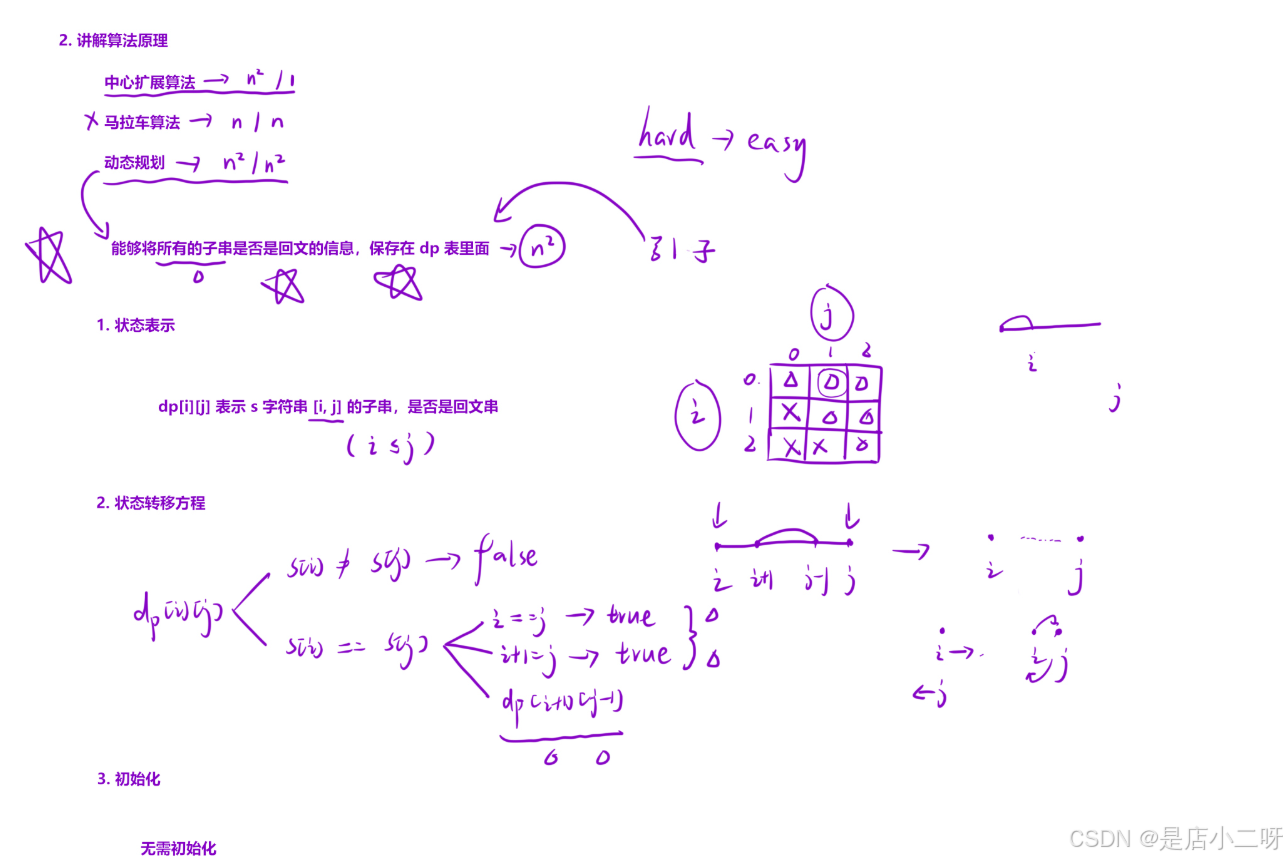 2. 讲解算法原理
中心扩展算法 → n² / 1
× 马拉车算法 → n / n
hard → easy
动态规划 → n² / n²
能够将所有的子串是否是回文的信息，保存在 dp 表里面 → n²
引子
1. 状态表示
j
0 1 2
0.
i 1
2
i
j
dp[i][j] 表示 s 字符串 [i, j] 的子串，是否是回文串
( i ≤ j )
2. 状态转移方程
s[i] ≠ s[j] → false
i i+1 j-1 j → i j
dp[i][j]
s[i] == s[j]
i==j → true
i+1=j → true
dp[i+1][j-1]
i → i j
← j
3. 初始化
无需初始化
CSDN @是店小二呀